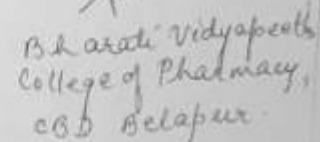 Bharati Vidyapeeth
College of Pharmacy,
CBD Belapur.